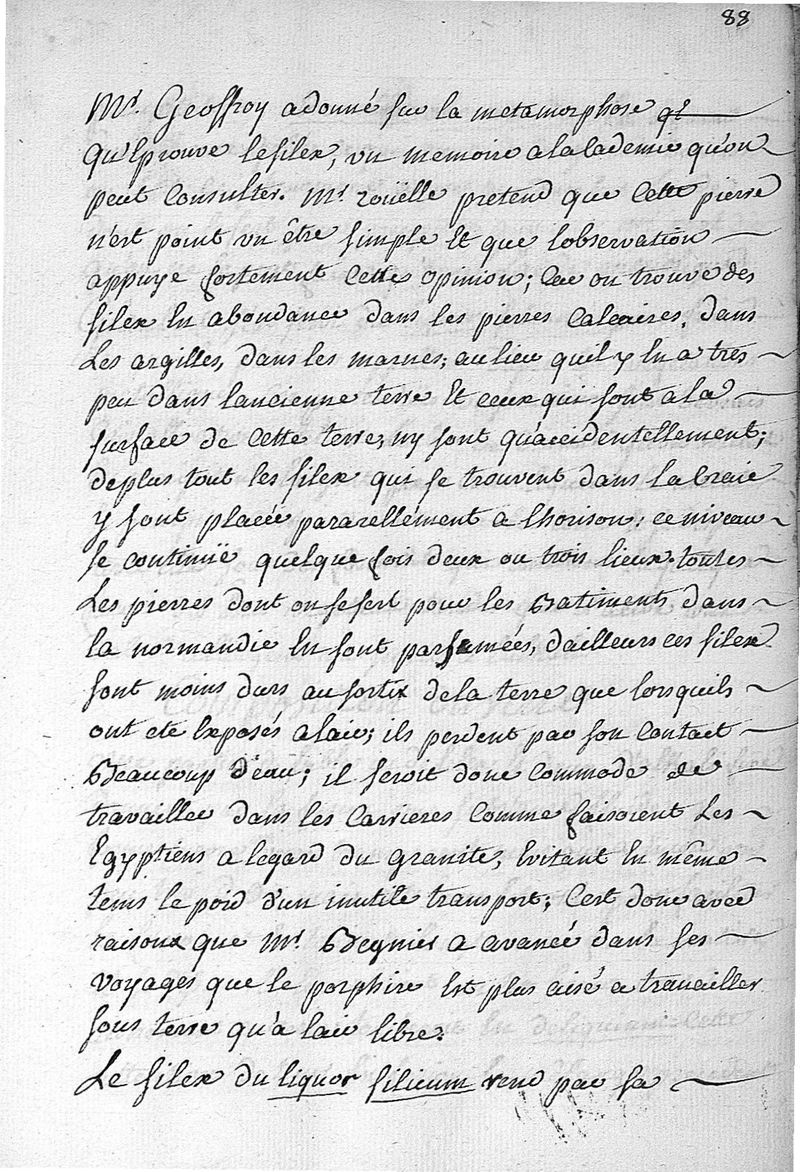 88
Mr. Geoffroy a donné sur la metamorphose
qu'Eprouve le silex, un memoire a lacademie qu'on
peut Consulter. Mr. roüelle pretend que Cette pierre
n'est point un être simple Et que lobservation
appuye fortement Cette opinion; Car on trouve des
silex En abondance dans les pierres Calcaires, dans
Les argilles, dans les marnes; au lieu quil y En a tres
peu dans lancienne terre Et ceux qui sont a la
surface de Cette terre, ny sont qu'accidentellement;
deplus tout les silex qui se trouvent dans la Craie
y sont placée pararellement a lhorison; ce niveau
se continüe quelque fois deux ou trois lieux. toutes
Les pierres dont on se sert pour les Batiments dans
la normandie En sont parsemées, dailleurs ces silex
sont moins durs au sortir de la terre que lorsquils
ont eté Exposés a lair; ils perdent par son Contact
Beaucoup d'eau; il seroit donc Commode de
travailler dans les Carrieres Comme faisoient Les
Egyptiens a legard du granite, Evitant En même
tems le poid d'un inutile transport; C'est donc avec
raison que Mr. Begnier a avancé dans ses
voyages que le porphire Est plus aisé a travailler
sous terre qu'a lair libre.
Le silex du liquor silicum rend par sa